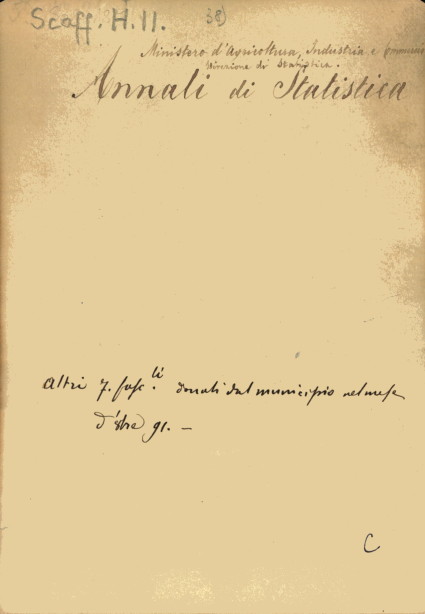 Scaff. H. 11.
38)
Ministero d'Agricoltura, Industria e Commercio
Direzione di Statistica.
Annali di Statistica
Altri 7. fasc.li donati dal municipio nel mese
d'8bre 91. —
C